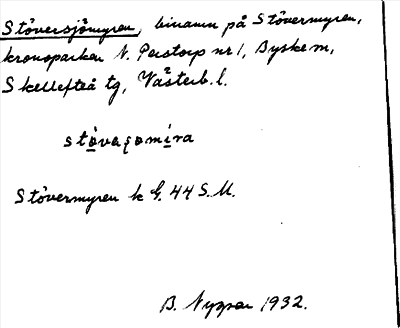 Stöversjömyren, binamn på Stövermyren,
kronoparken N. Perstorp nr 1, Byske sn,
Skellefteå tg, Västerb. l.
Stövermyren k G. 44 S.U.
B. Nyman 1932.